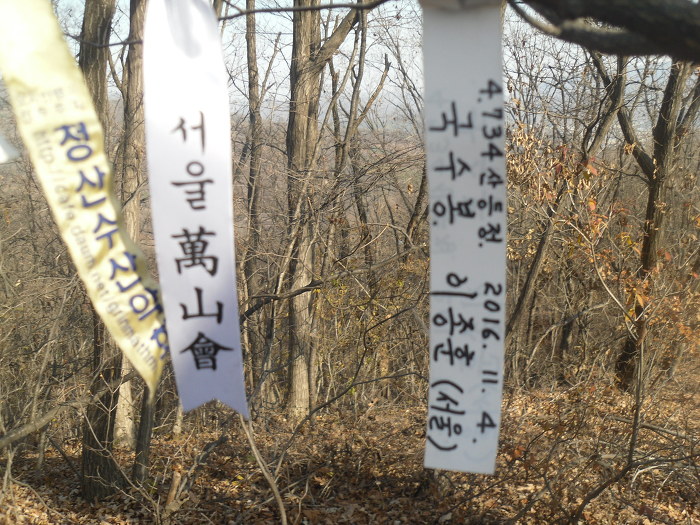 정산수산악
http://cafe.daum.net/
서울萬山會
4.734산등정. 2016. 11. 4.
국수봉. 이종훈 (서울)